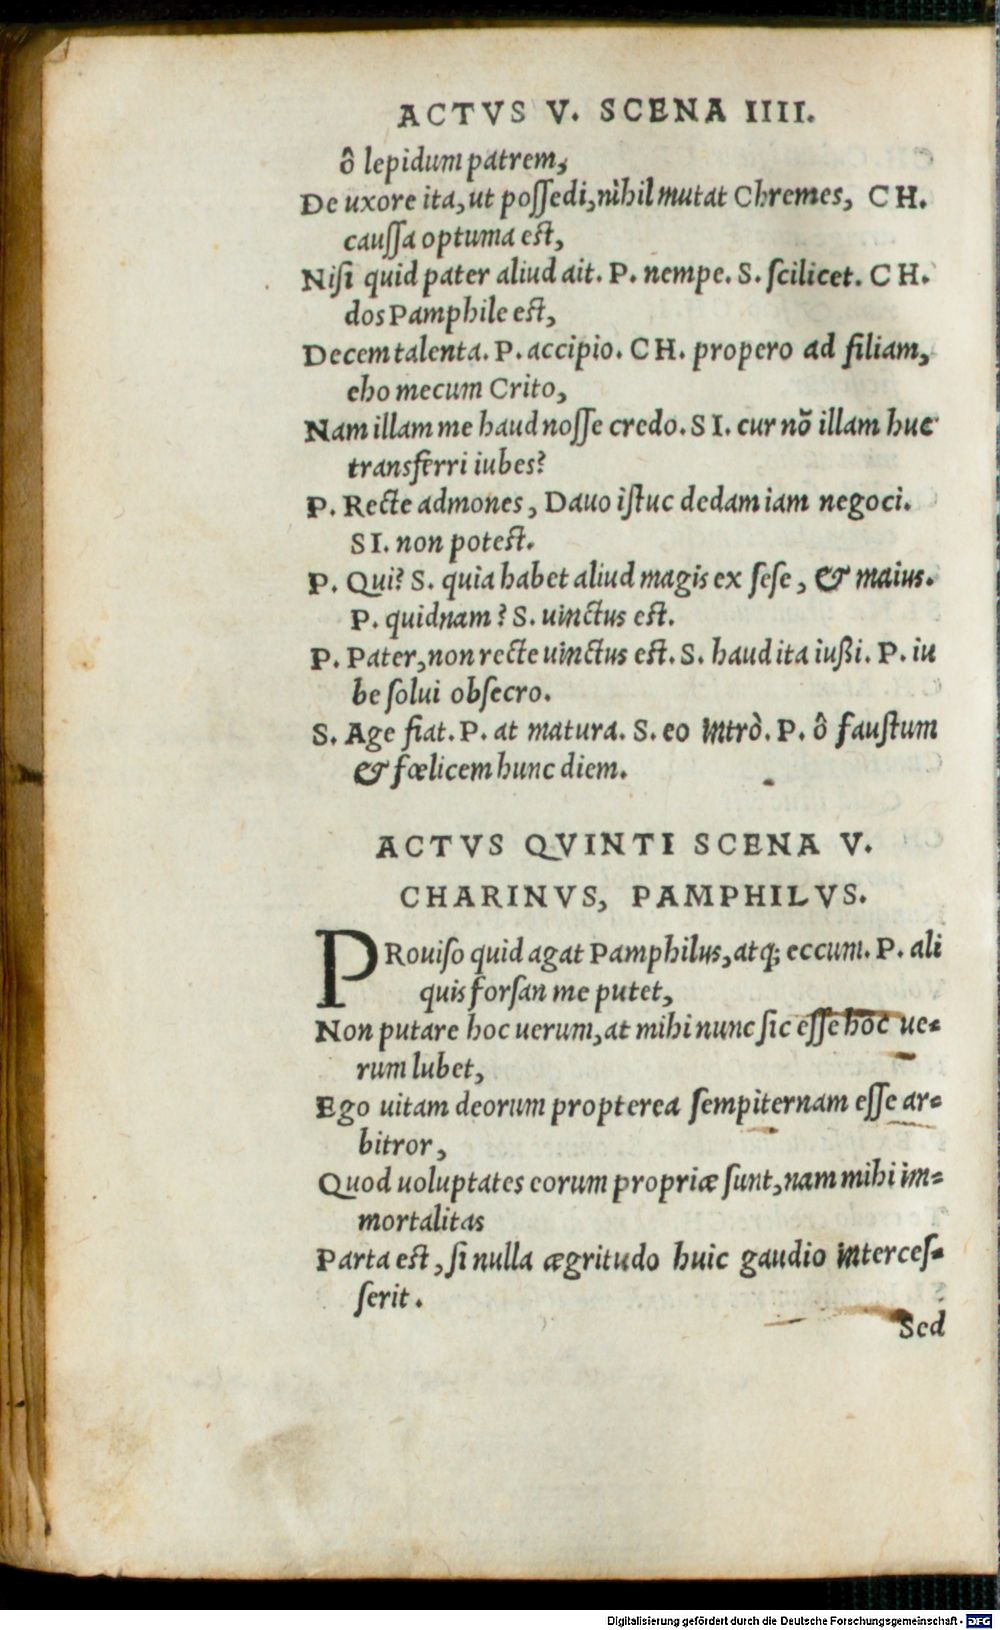 ACTVS V. SCENA IIII.
ô lepidum patrem,
De uxore ita, ut poſſedi, nihil mutat Chremes, CH.
cauſſa optuma eſt,
Niſi quid pater aliud ait. P. nempe. S. ſcilicet. CH.
dos Pamphile eſt,
Decem talenta. P. accipio. CH. propero ad filiam,
eho mecum Crito,
Nam illam me haud noſſe credo. SI. cur nõ illam huc
transferri iubes?
P. Recte admones, Dauo iſtuc dedam iam negoci.
SI. non poteſt.
P. Qui? S. quia habet aliud magis ex ſeſe, & maius.
P. quidnam? S. uinctus eſt.
P. Pater, non recte uinctus eſt. S. haud ita iußi. P. iu
be ſolui obſecro.
S. Age fiat. P. at matura. S. eo intrò. P. ô fauſtum
& fœlicem hunc diem.
ACTVS QVINTI SCENA V.
CHARINVS, PAMPHILVS.
PRouiſo quid agat Pamphilus, atq; eccum. P. ali
quis forſan me putet,
Non putare hoc uerum, at mihi nunc ſic eſſe hoc ue-
rum lubet,
Ego uitam deorum propterea ſempiternam eſſe ar-
bitror,
Quod uoluptates eorum propriæ ſunt, nam mihi im-
mortalitas
Parta eſt, ſi nulla ægritudo huic gaudio interceſ-
ſerit.
Sed
Digitalisierung gefördert durch die Deutsche Forschungsgemeinschaft - DFG